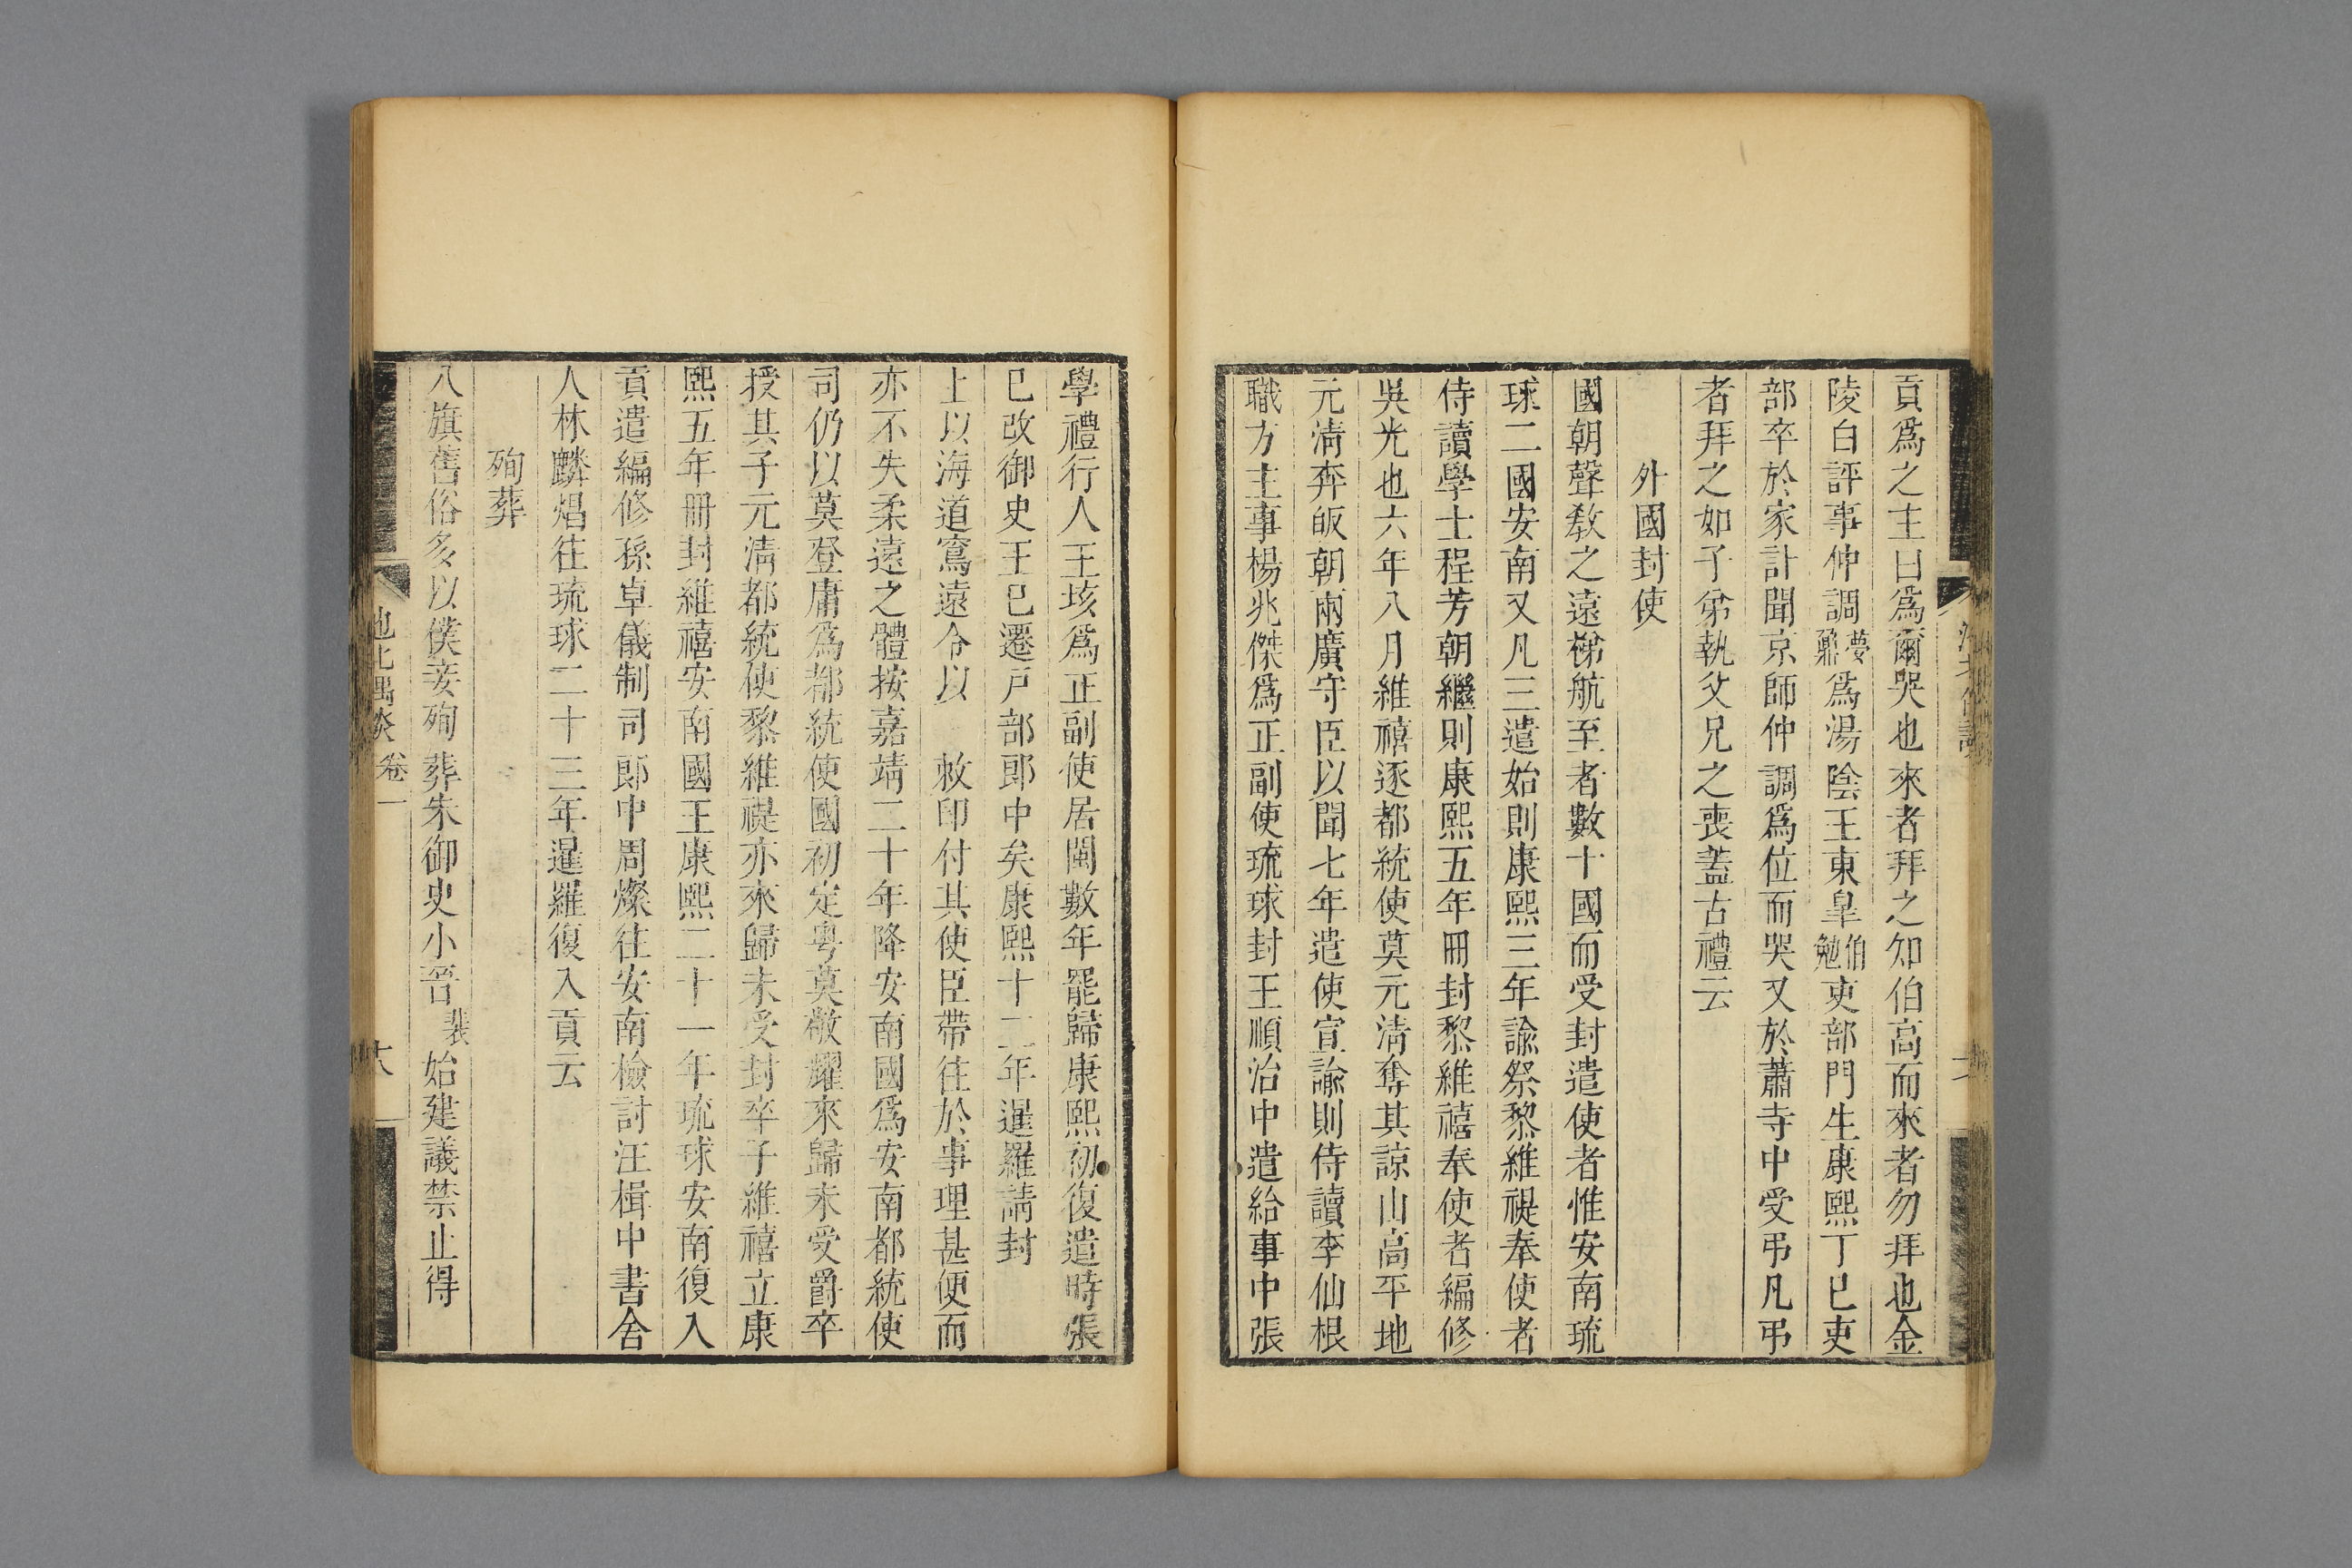 貢爲之主曰爲爾哭也來者拜之知伯高而來者勿拜也金
陵白評事仲調夢鼐爲湯陰王東臯伯勉吏部門生康熙丁巳吏
部卒於家計聞京師仲調爲位而哭又於蕭寺中受弔凡弔
者拜之如子弟執父兄之喪蓋古禮云
外國封使
國朝聲敎之遠梯航至者數十國而受封遣使者惟安南琉
球二國安南又凡三遣始則康熙三年諭祭黎維禔奉使者
侍讀學士程芳朝繼則康熙五年冊封黎維禧奉使者編修
吳光也六年八月維禧逐都統使莫元淸奪其諒山高平地
元淸奔皈朝兩廣守臣以聞七年遣使宣諭則侍讀李仙根
職方主事楊兆傑爲正副使琉球封王順治中遣給事中張
學禮行人王垓爲正副使居閩數年罷歸康熙初復遣時張
已改御史王已遷戸部郎中矣康熙十二年暹羅請封
上以海道窵遠令以 敕印付其使臣帶往於事理甚便而
亦不失柔遠之體按嘉靖二十年降安南國爲安南都統使
司仍以莫登庸爲都統使國初定粤莫敬耀來歸未受爵卒
授其子元淸都統使黎維禔亦來歸未受封卒子維禧立康
熙五年冊封維禧安南國王康熙二十一年琉球安南復入
貢遣編修孫卓儀制司郎中周燦往安南檢討汪楫中書舍
人林麟焻往琉球二十三年暹羅復入貢云
殉葬
八旗舊俗多以僕妾殉葬朱御史小晉裴始建議禁止得
池北偶談 卷一 六